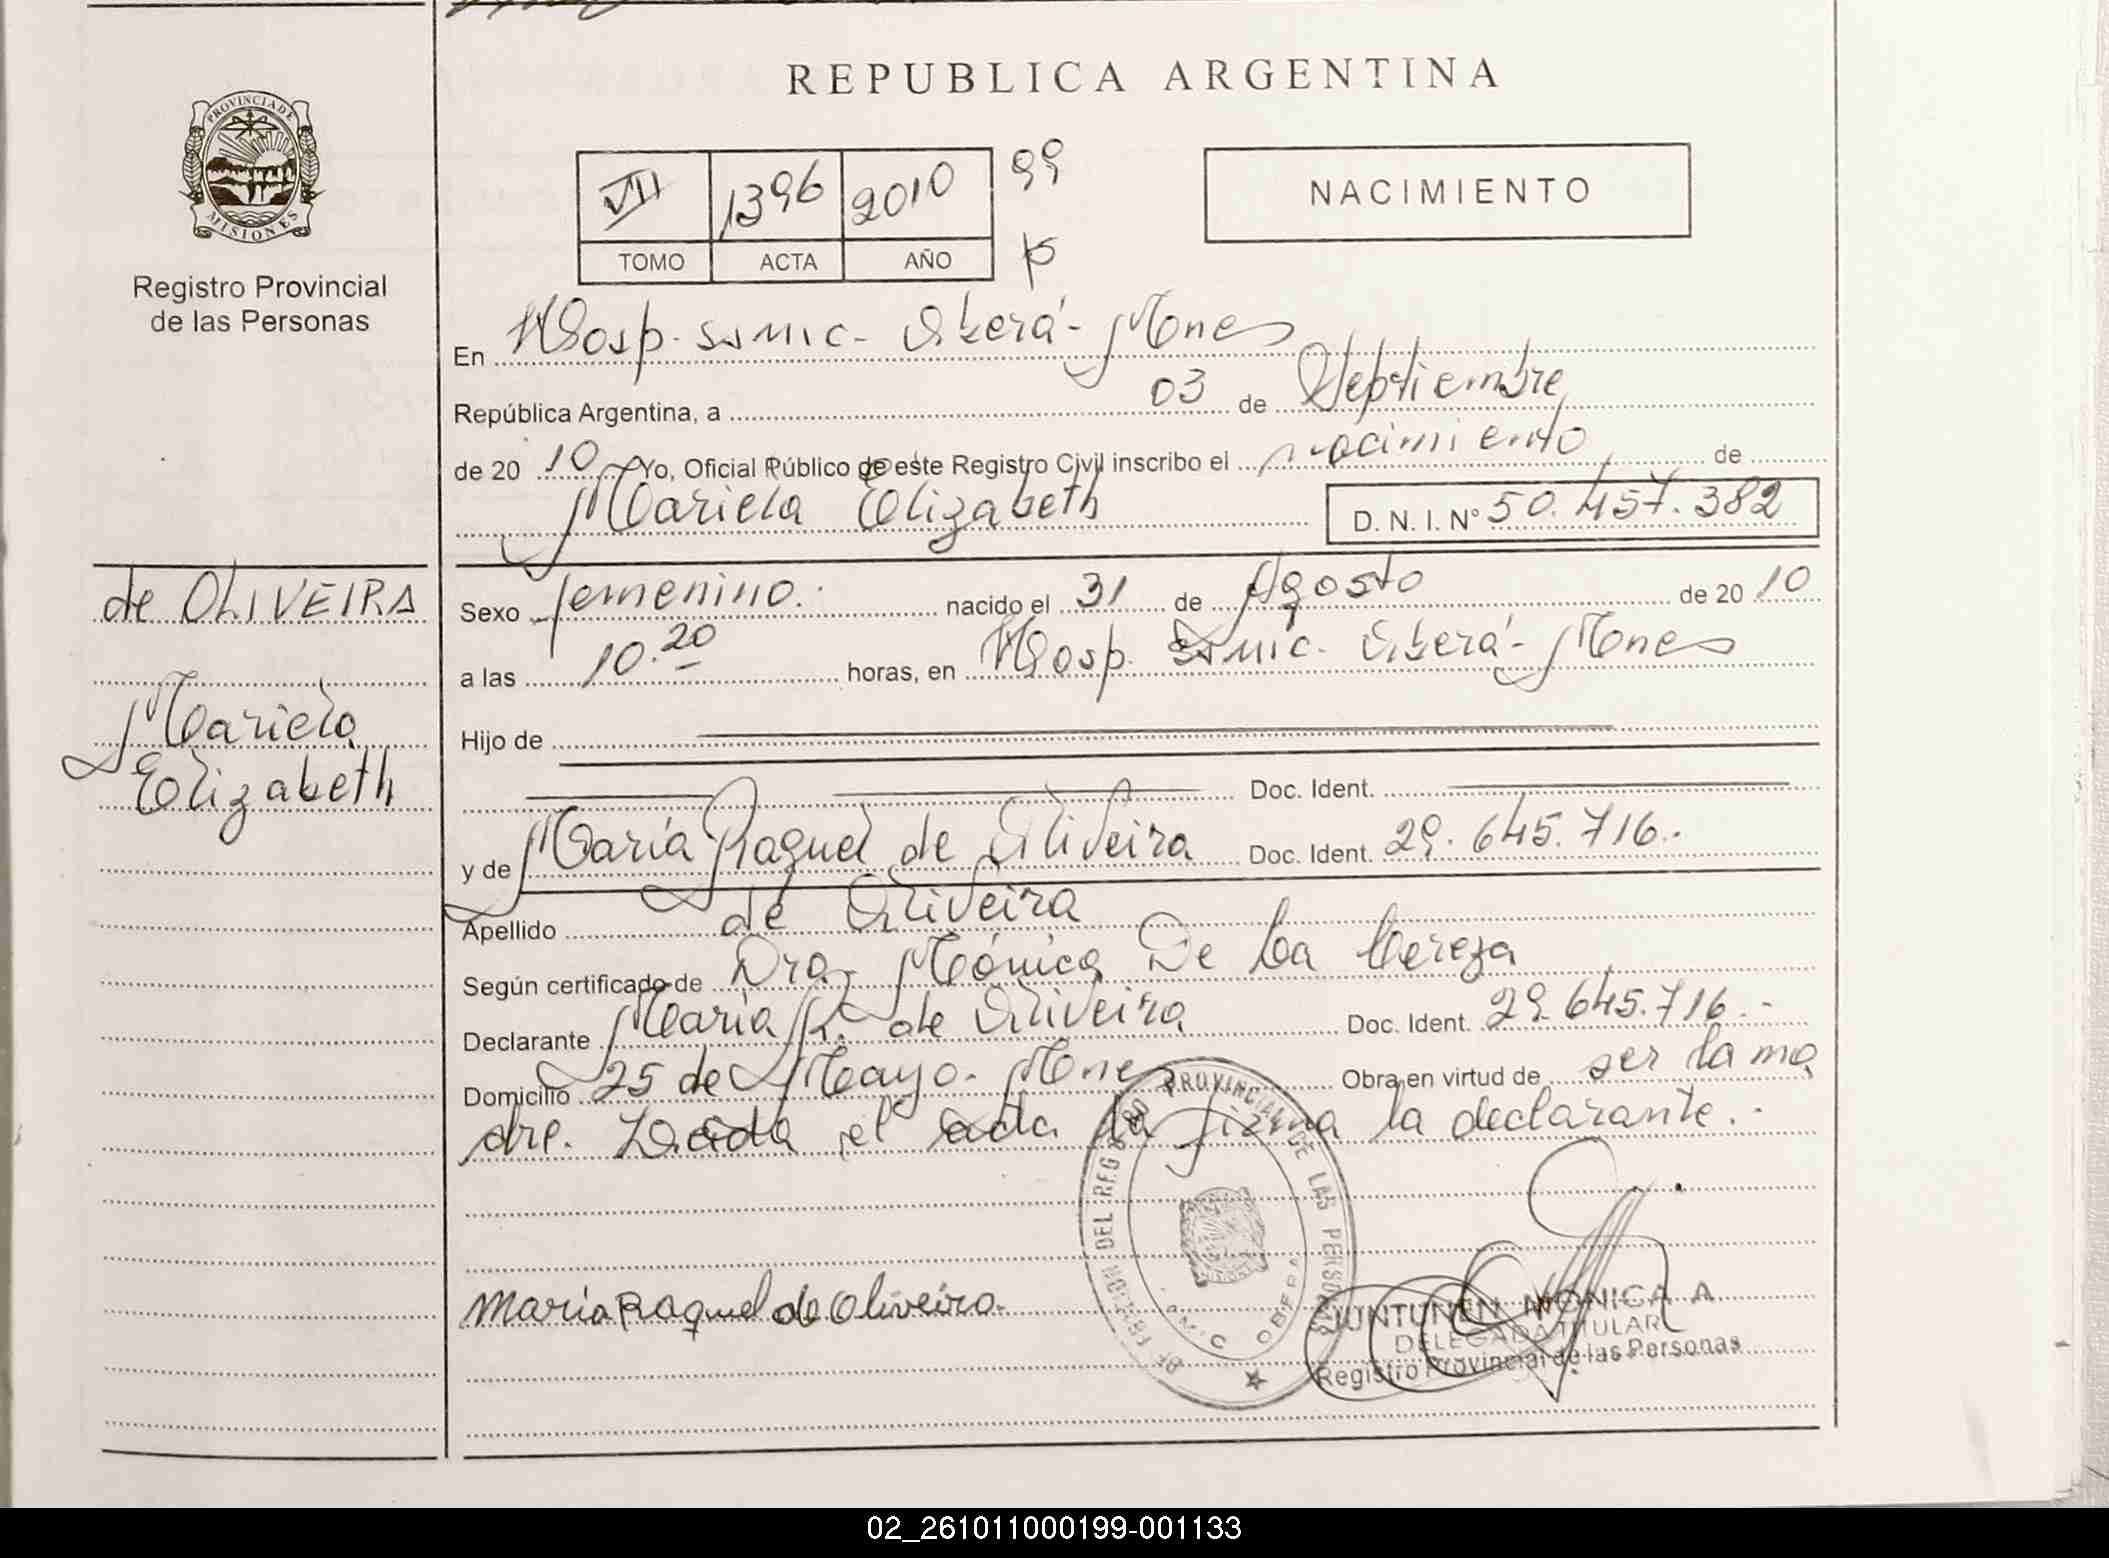 REPUBLICA ARGENTINA
PROVINCIA DE
MISIONES
Registro Provincial
de las Personas
VII 1396 2010 99
TOMO ACTA AÑO
NACIMIENTO
En Hosp. SSMIC - Oberá - Mnes
República Argentina, a 03 de Septiembre
de 20 10 Yo, Oficial Público de este Registro Civil inscribo el nacimiento de
Mariela Elizabeth D. N. I. Nº 50.457.382
de OLIVEIRA
Mariela
Elizabeth
Sexo femenino. nacido el 31 de Agosto de 20 10
a las 10.20 horas, en Hosp. SSMIC. Oberá - Mnes
Hijo de
Doc. Ident.
y de María Raquel de Oliveira Doc. Ident. 29.645.716.-
Apellido de Oliveira
Según certificado de Dra. Mónica De La Cereza
Declarante María R. de Oliveira Doc. Ident. 29.645.716.-
Domicilio 25 de Mayo - Mnes Obra en virtud de ser la ma
dre. Leida el acta la firma la declarante.-
DEL REGISTRO PROVINCIAL DE LAS PERSONAS
OBERA
María Raquel de Oliveira.
MONICA A
DELEGADA TITULAR
Registro Provincial de las Personas
02_261011000199-001133